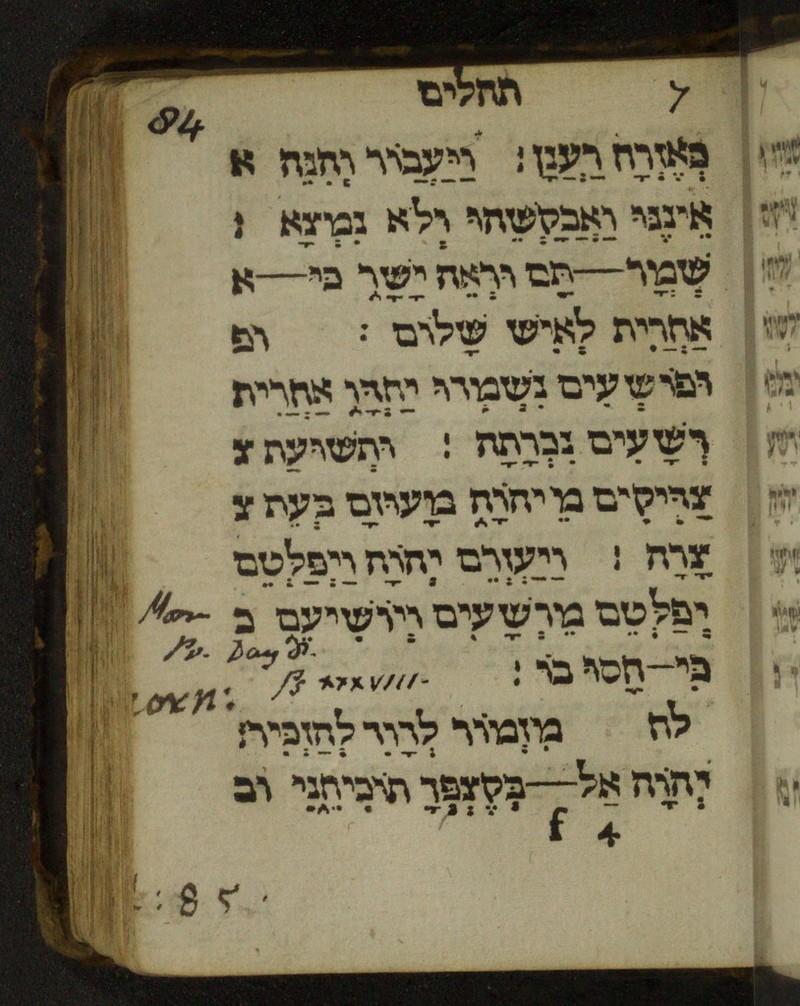 ל תהלים
84
כְּאֶזְרָח רַעֲנָן : וַיַּעֲבוֹר וְהִנֵּה א
אֵינֶנּוּ וַאֲבַקְשֵׁהוּ וְלֹא נִמְצָא :
שְׁמָר־תָּם וּרְאֵה יָשָׁר כִּי־א
אַחֲרִית לְאִישׁ שָׁלוֹם : ופ
וּפוֹשְׁעִים נִשְׁמְדוּ יַחְדָּו אַחֲרִית
רְשָׁעִים נִכְרָתָה : וּתְשׁוּעַת צ
צַדִּיקִים מֵיהוָֹה מָעוּזָּם בְּעֵת צ
צָרָה : וַיַּעְזְרֵם יְהוָֹה וַיְפַלְּטֵם
יְפַלְּטֵם מֵרְשָׁעִים וְיוֹשִׁיעֵם כ
Mor-
כִּי־חָסוּ בוֹ :
Pr. Day 8.
Ps XXXVIII-
לח מִזְמוֹר לְדָוִד לְהַזְכִּיר :
יְהוָֹה אַל־בְּקֶצְפְּךָ תוֹכִיחֵנִי וב
f 4